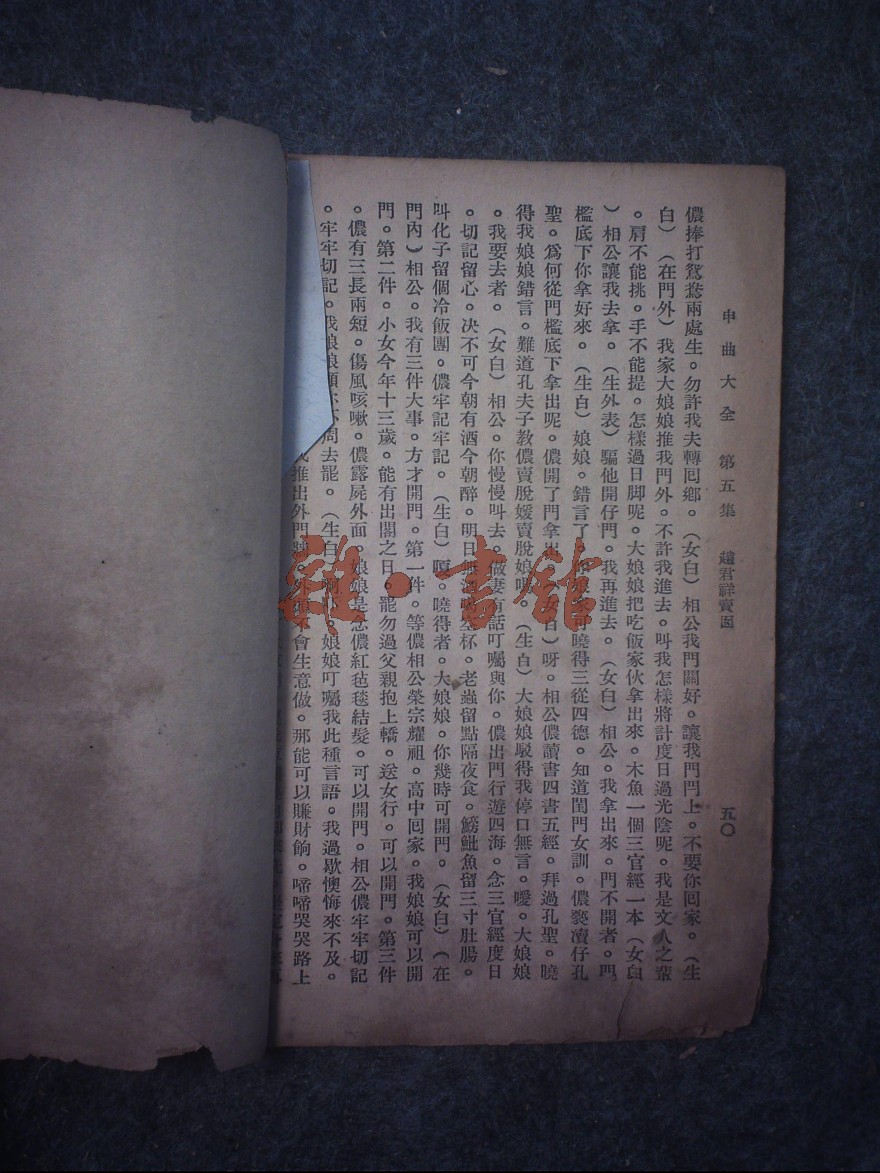 申曲大全 第五集 趙君祥賣囡 五〇
儂捧打鴛鴦兩處生。勿許我夫轉囘鄉。（女白）相公我門關好。讓我門閂上。不要你囘家。（生
白）（在門外）我家大娘娘推我門外。不許我進去。叫我怎樣將計度日過光陰呢。我是文人之輩
。肩不能挑。手不能提。怎樣過日脚呢。大娘娘把吃飯家伙拿出來。木魚一個三官經一本（女白
）相公讓我去拿。（生外表）騙他開仔門。我再進去。（女白）相公。我拿出來。門不開者。門
檻底下你拿好來。（生白）娘娘。錯言了。娘可曉得三從四德。知道閨門女訓。儂褻瀆仔孔
聖。爲何從門檻底下拿出呢。儂開了門拿出（女白）呀。相公儂讀書四書五經。拜過孔聖。曉
得我娘娘錯言。難道孔夫子教儂賣脫媛賣脫娘（生白）大娘娘駁得我停口無言。噯。大娘娘
。我要去者。（女白）相公。你慢慢叫去。做妻有話叮囑與你。儂出門行遊四海。念三官經度日
。切記留心。决不可今朝有酒今朝醉。明日無酒杯。老蟲留點隔夜食。鰟鮍魚留三寸肚腸。
叫化子留個冷飯團。儂牢記牢記。（生白）曉得者。大娘娘。你幾時可開門。（女白）（在
門內）相公。我有三件大事。方才開門。第一件。等儂相公榮宗耀祖。高中囘家。我娘娘可以開
門。第二件。小女今年十三歲。能有出閣之日。罷勿過父親抱上轎。送女行。可以開門。第三件
。儂有三長兩短。傷風咳嗽。儂露屍外面。娘娘是念儂紅毡毯結髮。可以開門。相公儂牢牢切記
。牢牢切記。我娘娘周去罷。（生白）娘娘叮囑我此種言語。我過歇懊悔來不及。
推出外門會生意做。那能可以賺財餉。啼啼哭哭路上
雜·書館